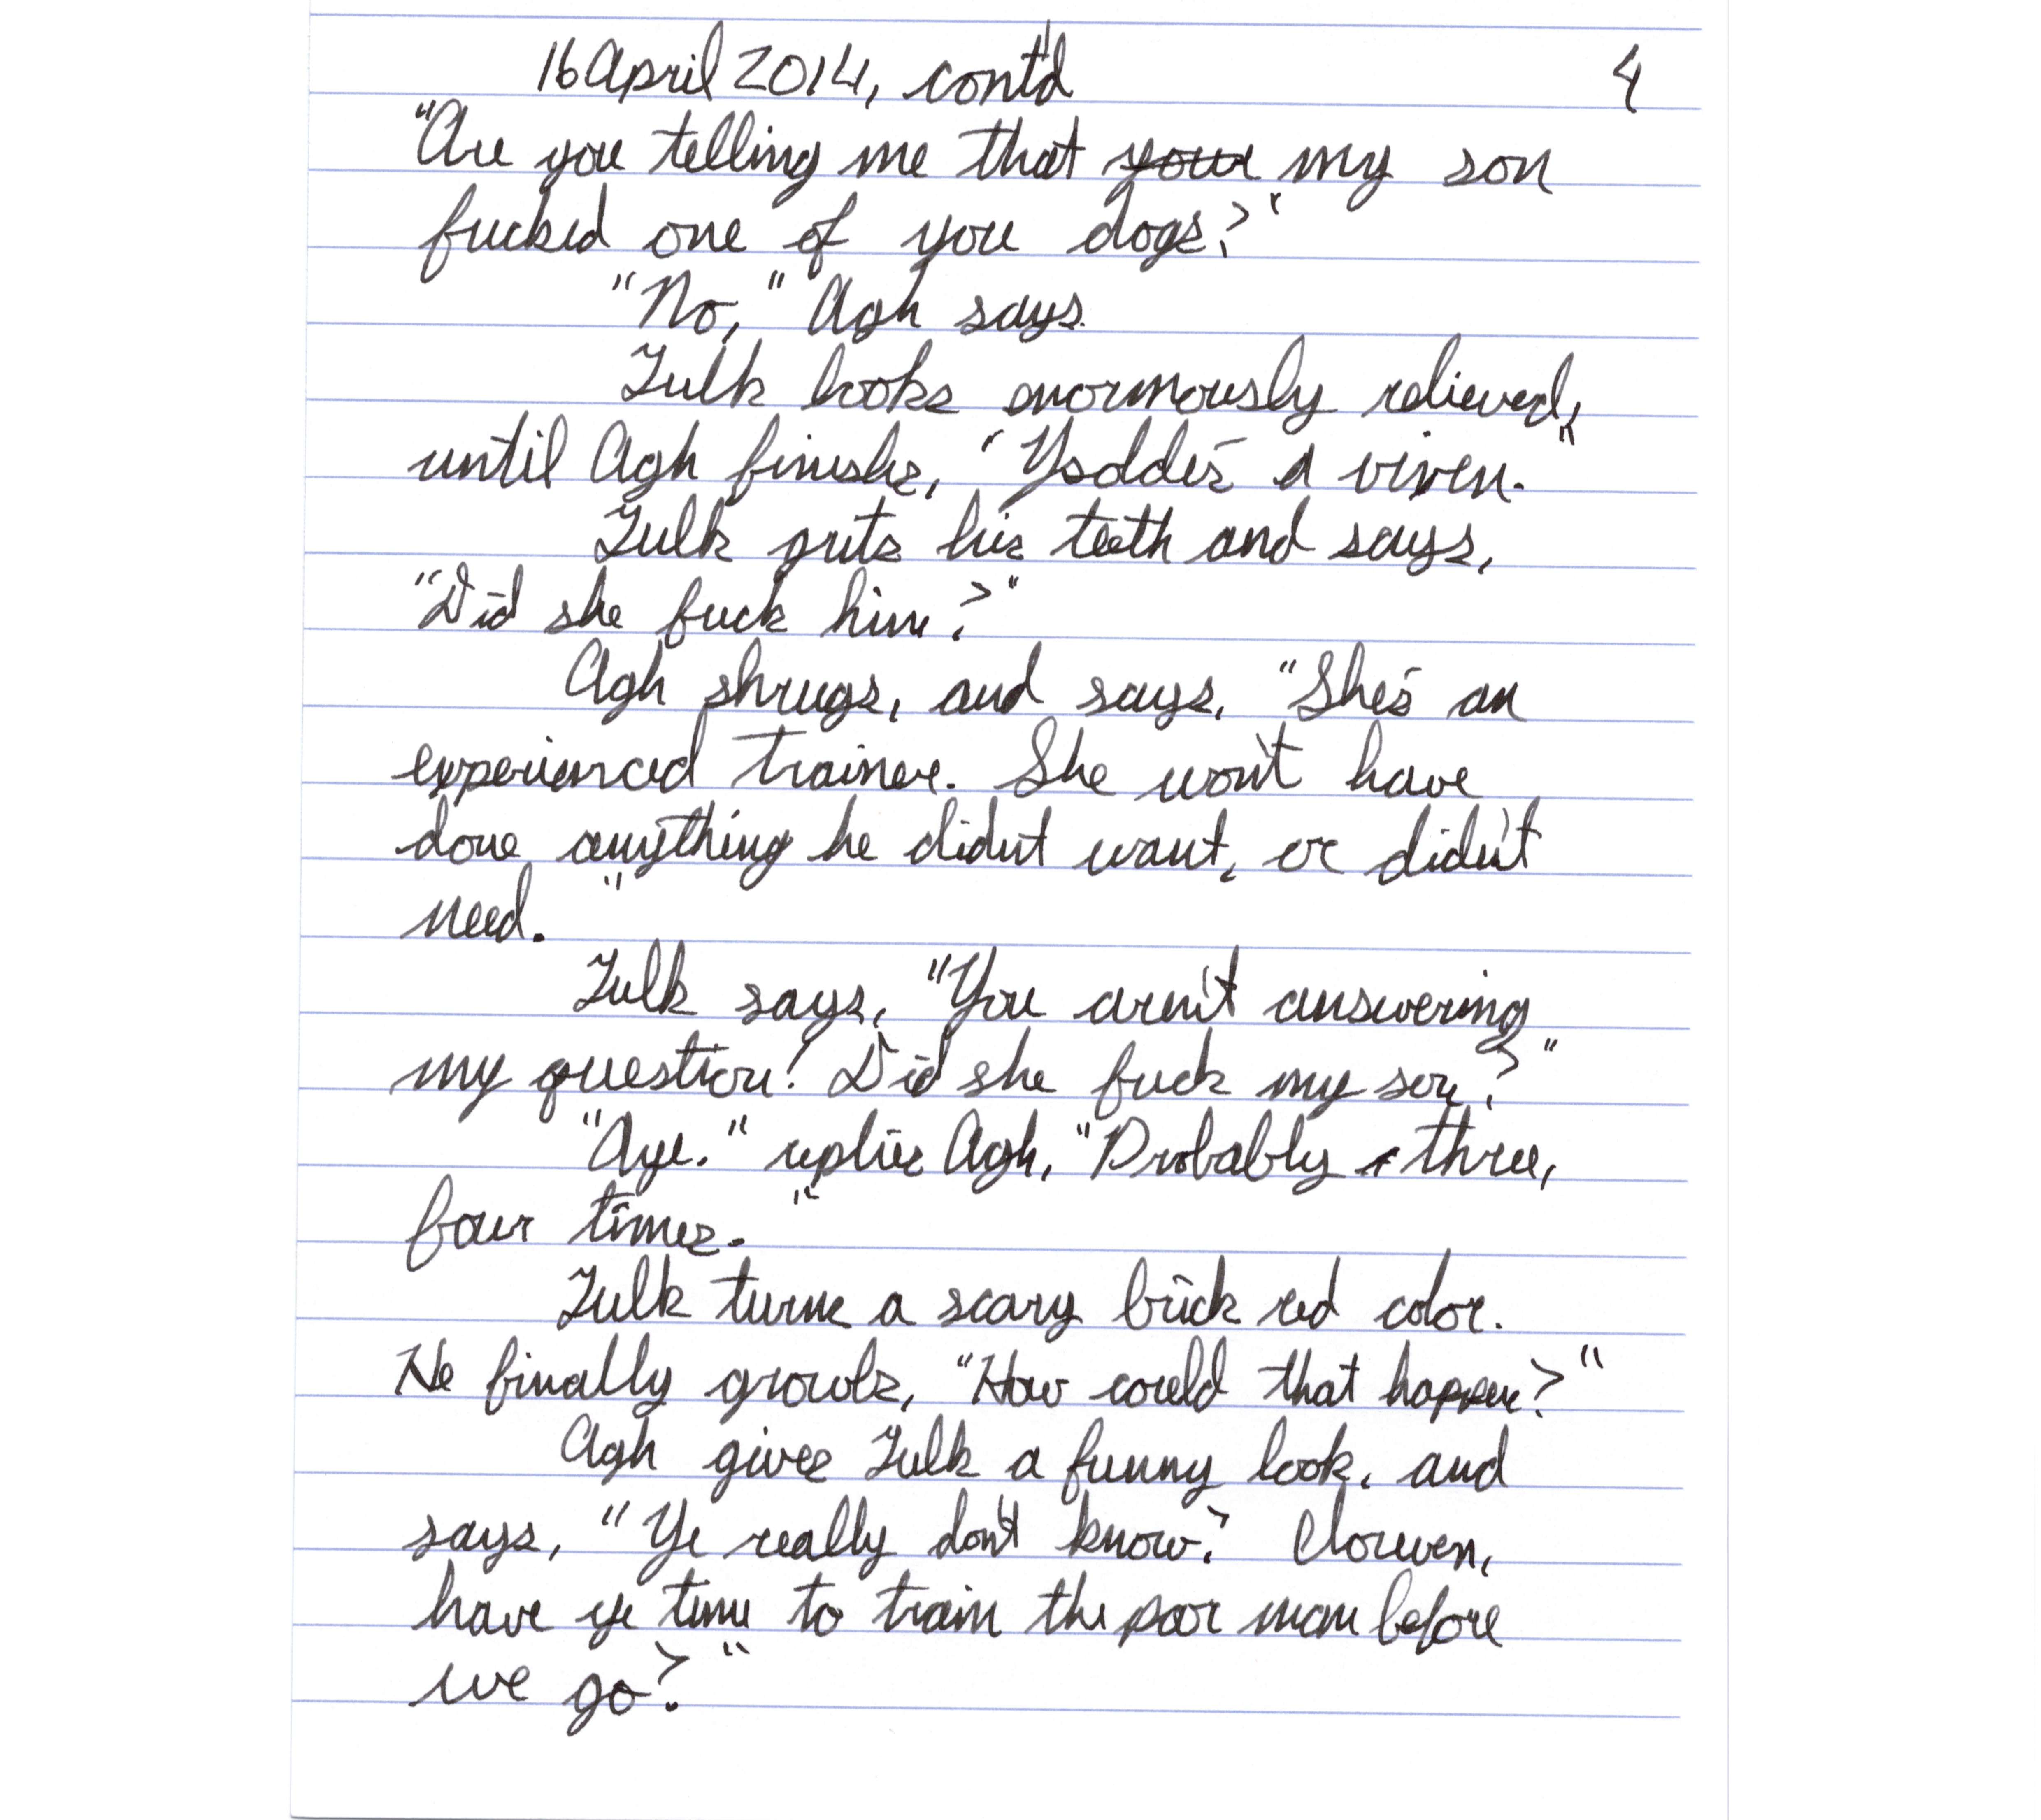 16 April 2014, cont'd 4
"Are you telling me that your my son
fucked one of you dogs?"
"No," Agh says.
Tulk looks enormously relieved,
until Agh finishes, "Ysolde's a vixen."
Tulk grits his teeth and says,
"Did she fuck him?"
Agh shrugs, and says, "She's an
experienced trainer. She won't have
done anything he didn't want, or didn't
need."
Tulk says, "You aren't answering
my question! Did she fuck my son?"
"Aye." replies Agh, "Probably three,
four times."
Tulk turns a scary brick red color.
He finally growls, "How could that happen?"
Agh gives Tulk a funny look, and
says, "Ye really don't know?
have ye time to train the poor man before
we go?"